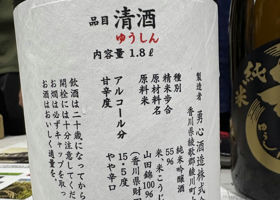 品目 清酒
ゆうしん
内容量 1.8ℓ
製造者 勇心酒造株式
香川県綾歌郡綾川町
種別 純米吟醸酒
精米歩合 55%
原材料名 米、米こうじ
原料米 山田錦100%
(香川県
アルコール分 15.5度
甘辛度 やや辛口
飲酒は二十歳になってから
開栓には十分注意してくだ
お燗は必ずキャップを取っ
お酒はおいしく適量を。
純米